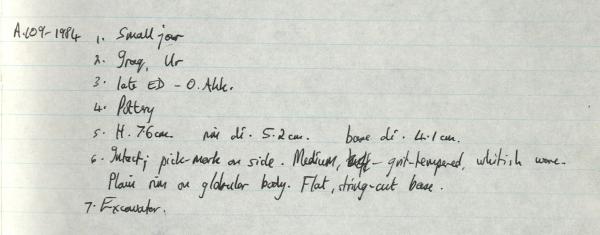 A.109-1984 1. Small jar
2. Iraq, Ur
3. late ED - O. Akk.
4. Pottery
5. H. 7.6cm. rim di. 5.2cm. base di. 4.1cm.
6. Intact; pick-mark on side. Medium, grit-tempered, whitish ware.
Plain rim on globular body. Flat, string-cut base.
7. Excavator.